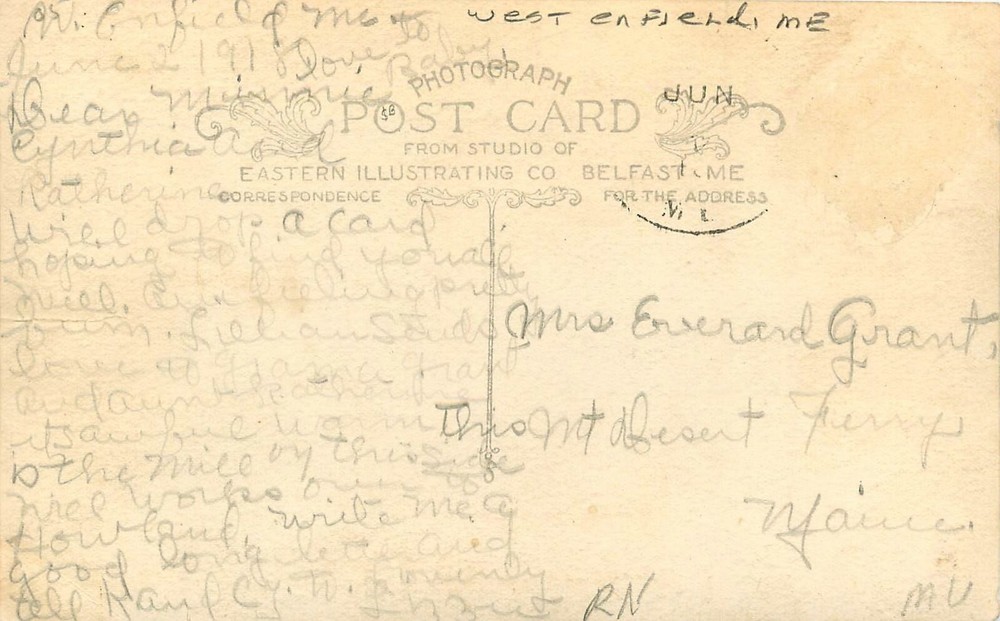 W. Enfield Me
June 2 1918 love to Baby
Dear Minnie
Cynthia and
Katherine
Will drop a card
hoping to find you all
well. Am feeling pretty
bum. Lillian Sends
love to Grama Grant
and aunt Katherine
its awful warm
This is the Mill on this side
Will works over to
Howland, write me a
good long letter and
tell Cy.
WEST ENFIELD, ME
PHOTOGRAPH
POST CARD
FROM STUDIO OF
EASTERN ILLUSTRATING CO BELFAST, ME
CORRESPONDENCE
FOR THE ADDRESS
JUN
1
Mrs Everard Grant,
Mt Desert Ferry
Maine.
RN
MU